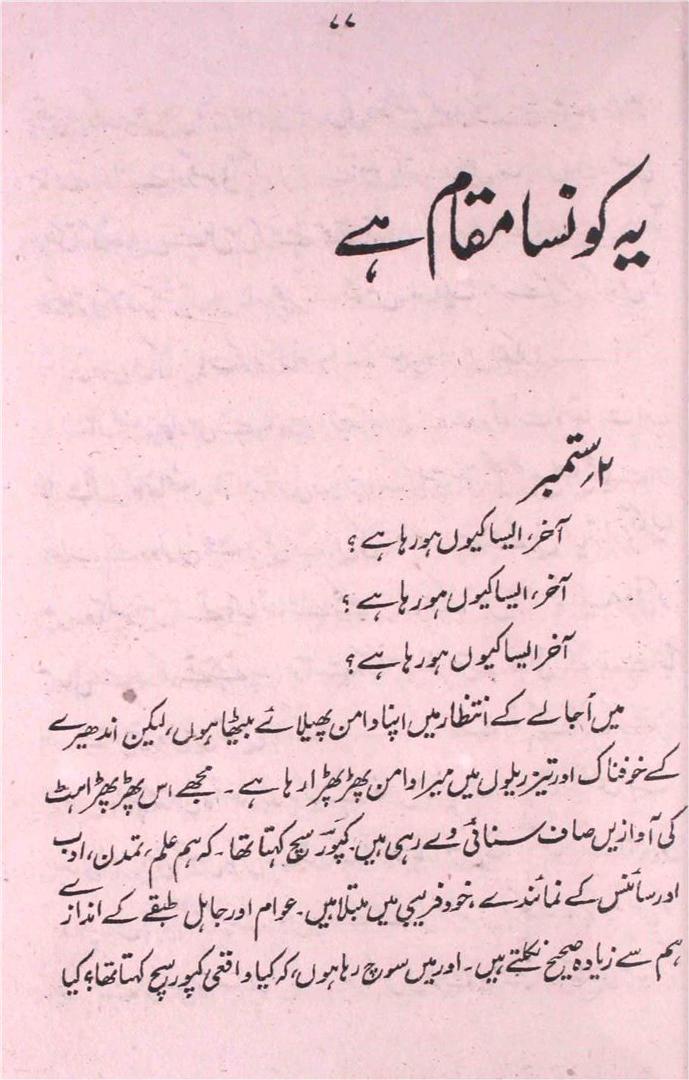 ۷۷
یہ کونسا مقام ہے
۲ ستمبر
آخر، ایسا کیوں ہو رہا ہے؟
آخر، ایسا کیوں ہو رہا ہے؟
آخر ایسا کیوں ہو رہا ہے؟
میں اُجالے کے انتظار میں اپنا دامن پھیلائے بیٹھا ہوں، لیکن اندھیرے
کے خوفناک اور تیز ریلوں میں میرا دامن پھڑپھڑا رہا ہے۔ مجھے اس پھڑپھڑاہٹ
کی آوازیں صاف سنائی دے رہی ہیں۔ کپور سچ کہتا تھا۔ کہ ہم علم، تمدن، ادب
اور سائنس کے نمائندے، خود فریبی میں مبتلا ہیں۔ عوام اور جاہل طبقے کے اندازے
ہم سے زیادہ صحیح نکلتے ہیں۔ اور میں سوچ رہا ہوں، کہ کیا واقعی کپور سچ کہتا تھا؟ کیا